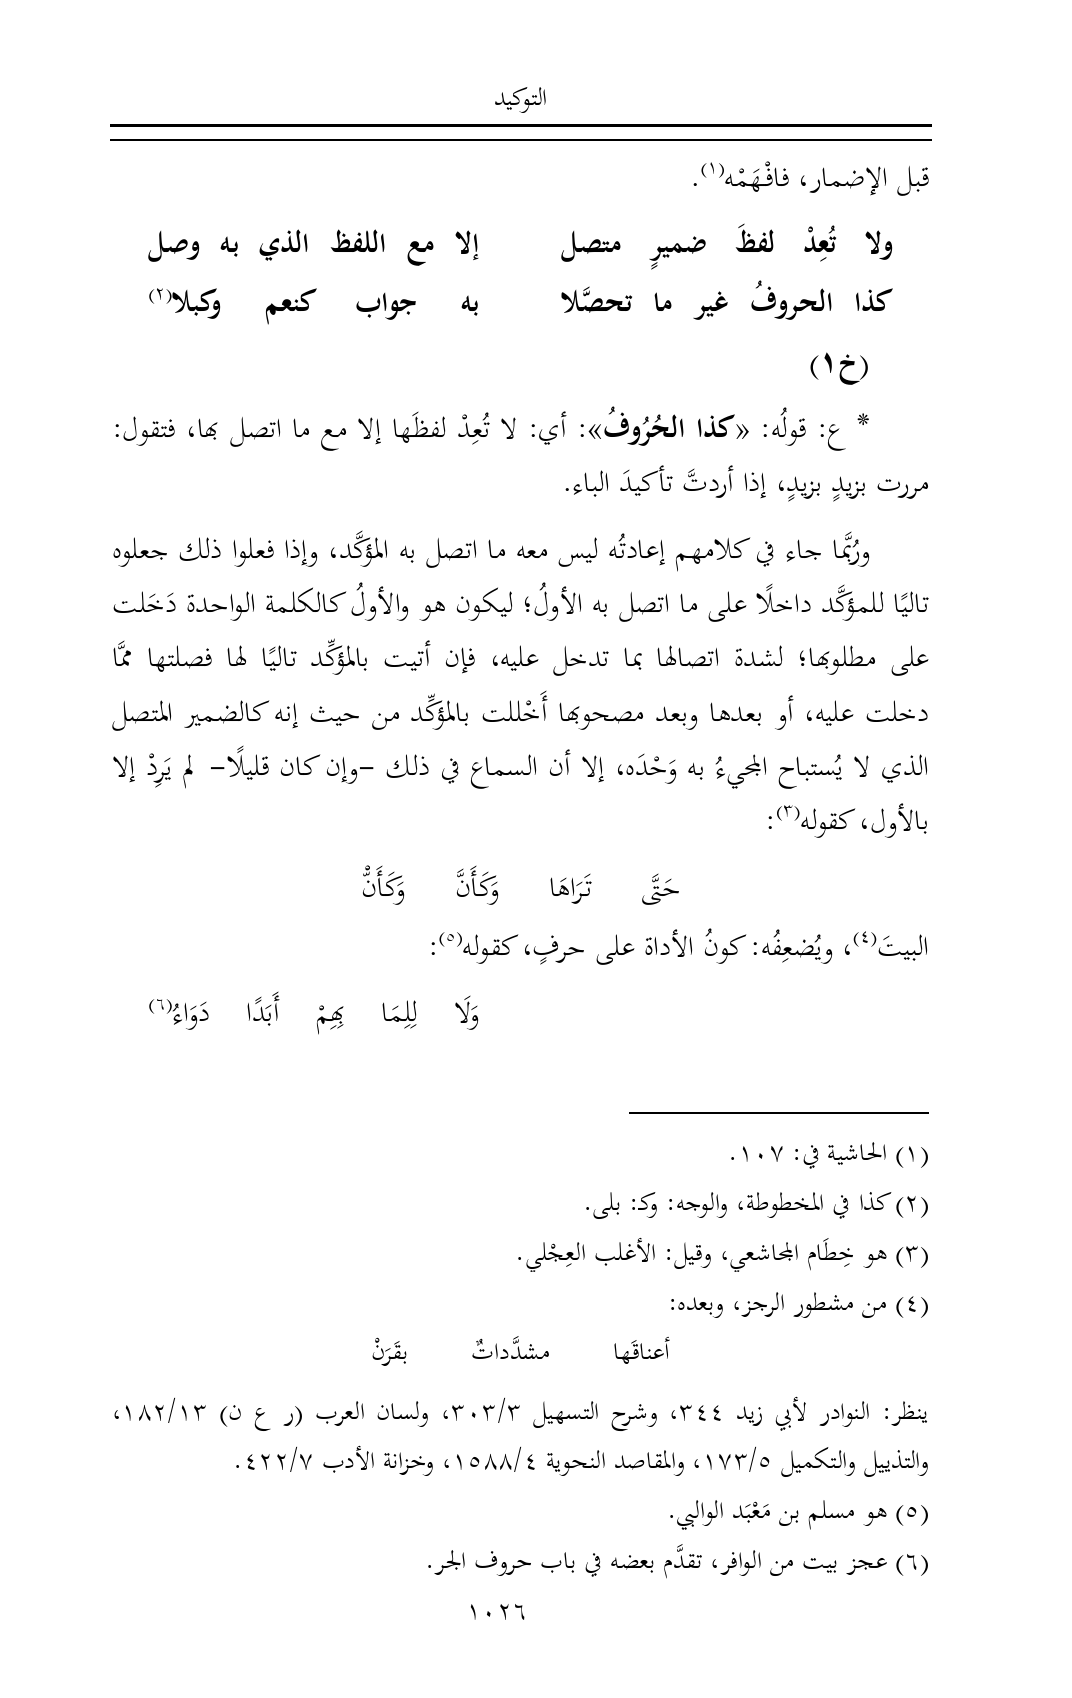 التوكيد
قبل الإضمار، فافْهَمْه(١).
ولا تُعِدْ لفظَ ضميرٍ متصل إلا مع اللفظ الذي به وصل
كذا الحروفُ غير ما تحصَّلا به جواب كنعم وكبلا(٢)
(خ١)
* ع: قولُه: «كذا الحُرُوفُ»: أي: لا تُعِدْ لفظَها إلا مع ما اتصل بها، فتقول:
مررت بزيدٍ بزيدٍ، إذا أردتَّ تأكيدَ الباء.
ورُبَّما جاء في كلامهم إعادتُه ليس معه ما اتصل به المؤكَّد، وإذا فعلوا ذلك جعلوه
تاليًا للمؤكَّد داخلًا على ما اتصل به الأولُ؛ ليكون هو والأولُ كالكلمة الواحدة دَخَلت
على مطلوبها؛ لشدة اتصالها بما تدخل عليه، فإن أتيت بالمؤكِّد تاليًا لها فصلتها ممَّا
دخلت عليه، أو بعدها وبعد مصحوبها أَخْللت بالمؤكِّد من حيث إنه كالضمير المتصل
الذي لا يُستباح المجيءُ به وَحْدَه، إلا أن السماع في ذلك -وإن كان قليلًا- لم يَرِدْ إلا
بالأول، كقوله(٣):
حَتَّى تَرَاهَا وَكَأَنَّ وَكَأَنّْ
البيتَ(٤)، ويُضعِفُه: كونُ الأداة على حرفٍ، كقوله(٥):
وَلَا لِلِمَا بِهِمْ أَبَدًا دَوَاءُ(٦)
(١) الحاشية في: ١٠٧.
(٢) كذا في المخطوطة، والوجه: وكـ: بلى.
(٣) هو خِطَام المجاشعي، وقيل: الأغلب العِجْلي.
(٤) من مشطور الرجز، وبعده:
أعناقَها مشدَّداتٌ بقَرَنْ
ينظر: النوادر لأبي زيد ٣٤٤، وشرح التسهيل ٣٠٣/٣، ولسان العرب (ر ع ن) ١٨٢/١٣،
والتذييل والتكميل ١٧٣/٥، والمقاصد النحوية ١٥٨٨/٤، وخزانة الأدب ٤٢٢/٧.
(٥) هو مسلم بن مَعْبَد الوالبي.
(٦) عجز بيت من الوافر، تقدَّم بعضه في باب حروف الجر.
١٠٢٦